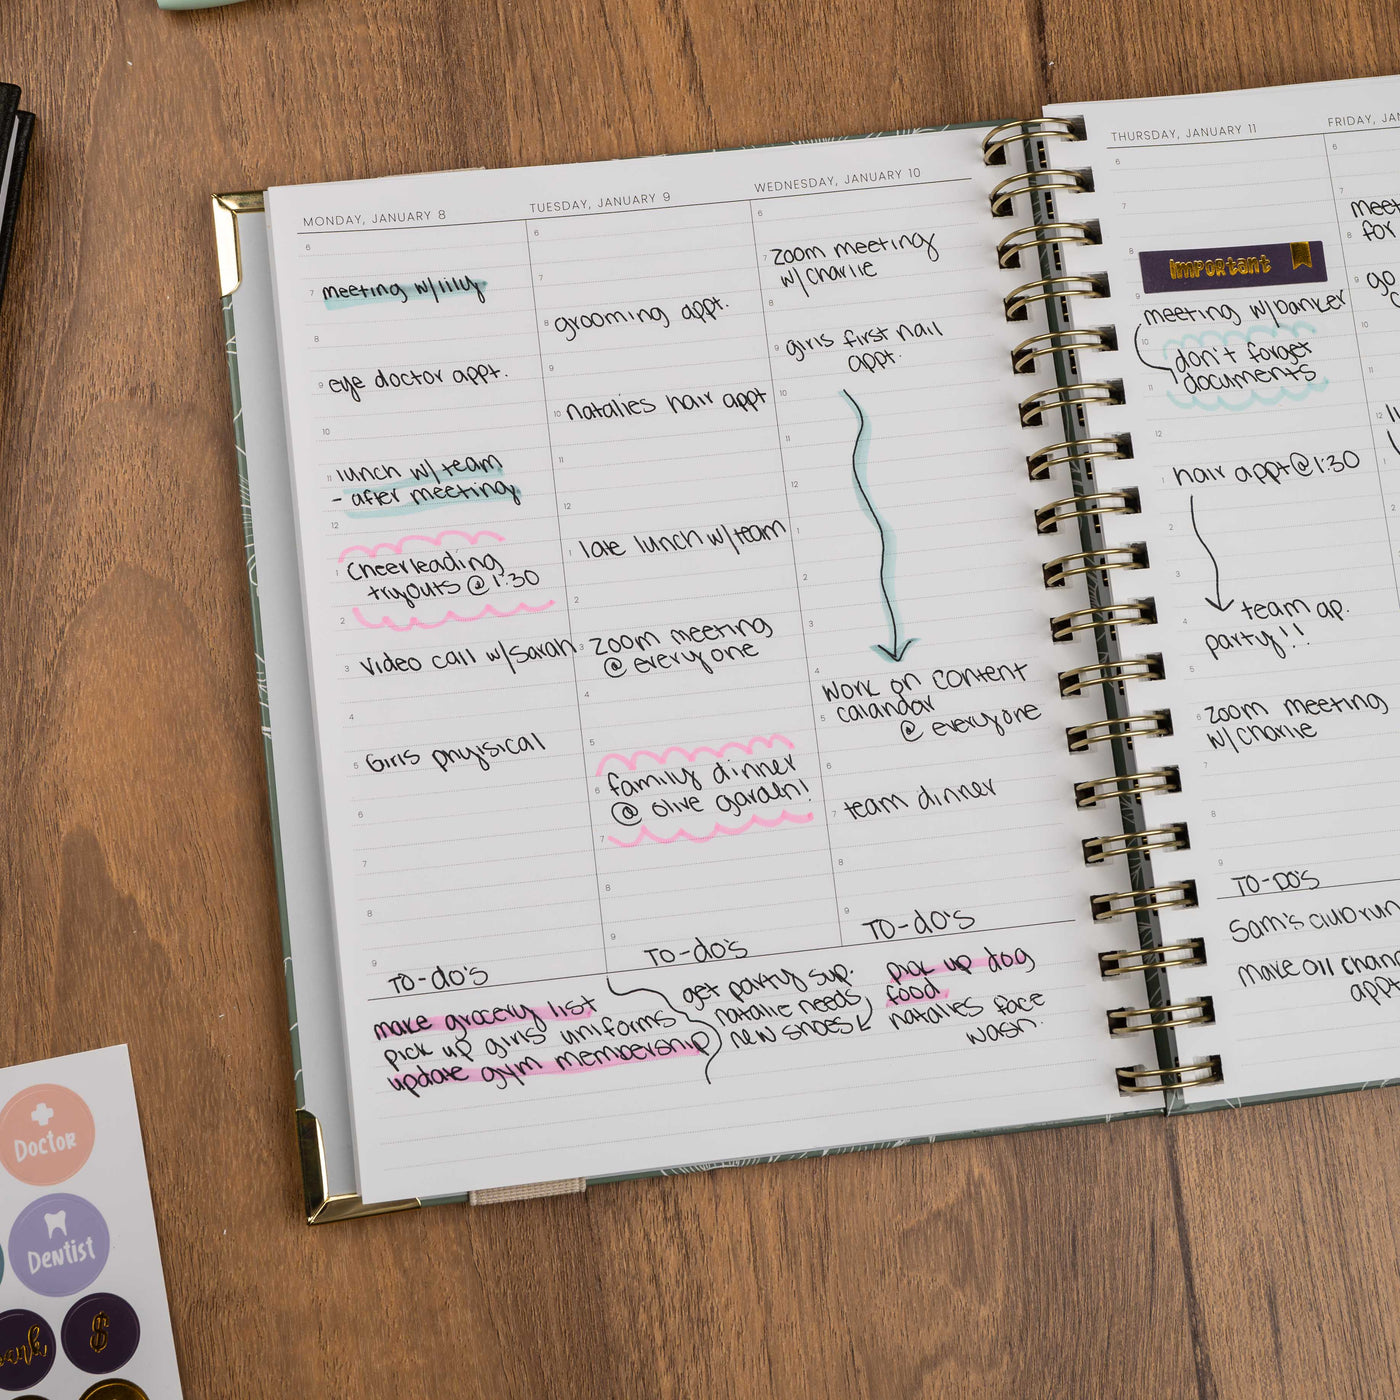 MONDAY, JANUARY 8
6
7 meeting w/lily
8
9 eye doctor appt.
10
11 lunch w/ team
- after meeting
12
1 Cheerleading
tryouts @ 1:30
2
3 video call w/Sarah
4
5 Girls phyisical
6
7
8
9
TO-do's
make grocery list
pick up girls' uniforms
update gym membership
TUESDAY, JANUARY 9
6
7
8 grooming appt.
9
10 natalies hair appt
11
12
1 late lunch w/team
2
3 zoom meeting
@ everyone
4
5
6 family dinner
@ olive garden!
7
8
9
TO-do's
get party sup.
natalie needs
new shoes
WEDNESDAY, JANUARY 10
6
7 zoom meeting
w/ Charlie
8
9 girls first nail
appt.
10
11
12
1
2
3
4
work on content
5 calandar
@ everyone
6
7 team dinner
8
9
TO-do's
pick up dog
food
natalies face
wash.
THURSDAY, JANUARY 11
6
7
8
Important
9
meeting w/banker
10 don't forget
11 documents
12
1 hair appt@1:30
2
3
4 team ap.
party!!
5
6 zoom meeting
w/Charlie
7
8
9
TO-DO'S
Sam's club run
make oil chan
appt
FRIDAY, JAN
6
7
meet
8 for
9 go
10
11
12
1
2
Doctor
Dentist
$